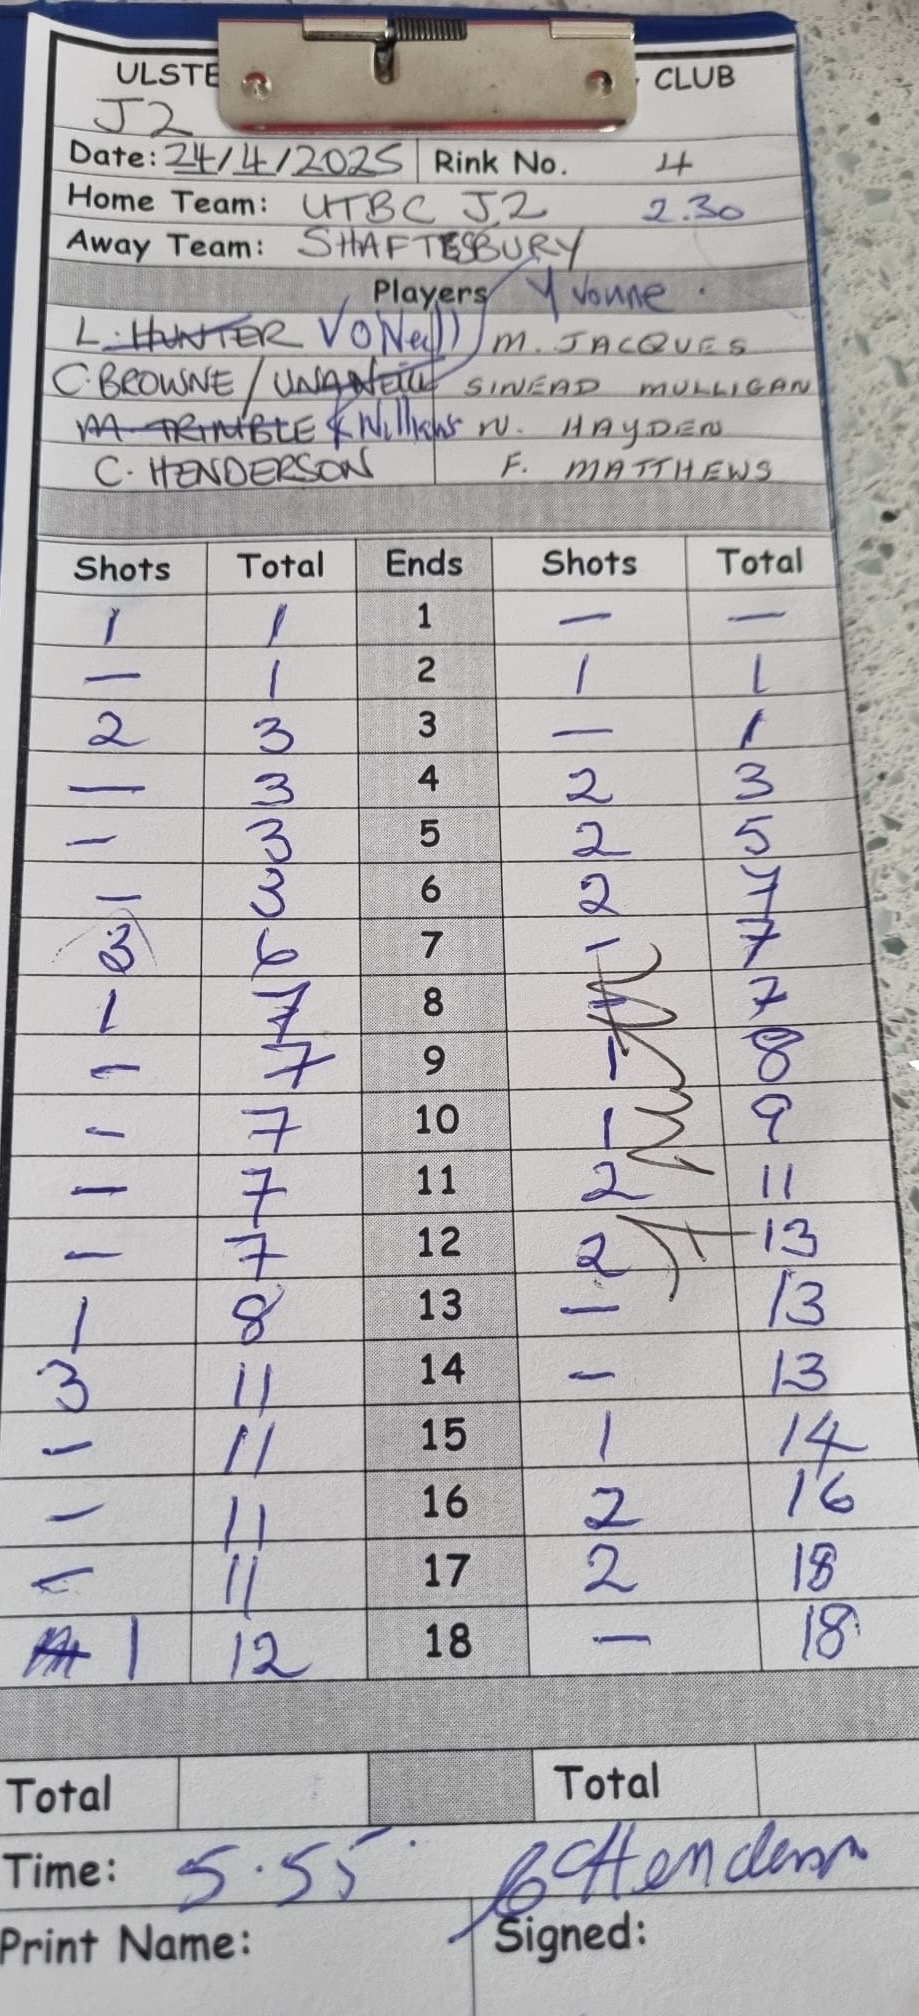 ULSTE CLUB
J2
Date: 24/4/2025 Rink No. 4
Home Team: UTBC J2 2.30
Away Team: SHAFTESBURY
Players Yvonne
L. HUNTER V ONeill M. JACQUES
C. BROWNE / SINEAD MULLIGAN
M. TRIMBLE N. HAYDEN
C. HENDERSON F. MATTHEWS
Shots Total Ends Shots Total
1 1 1 — —
— 1 2 1 1
2 3 3 — 1
— 3 4 2 3
— 3 5 2 5
— 3 6 2 7
3 6 7 — 7
1 7 8 — 7
— 7 9 1 8
— 7 10 1 9
— 7 11 2 11
— 7 12 2 13
1 8 13 — 13
3 11 14 — 13
— 11 15 1 14
— 11 16 2 16
— 11 17 2 18
1 12 18 — 18
Total Total
Time: 5.55 CHenderson
Print Name: Signed: